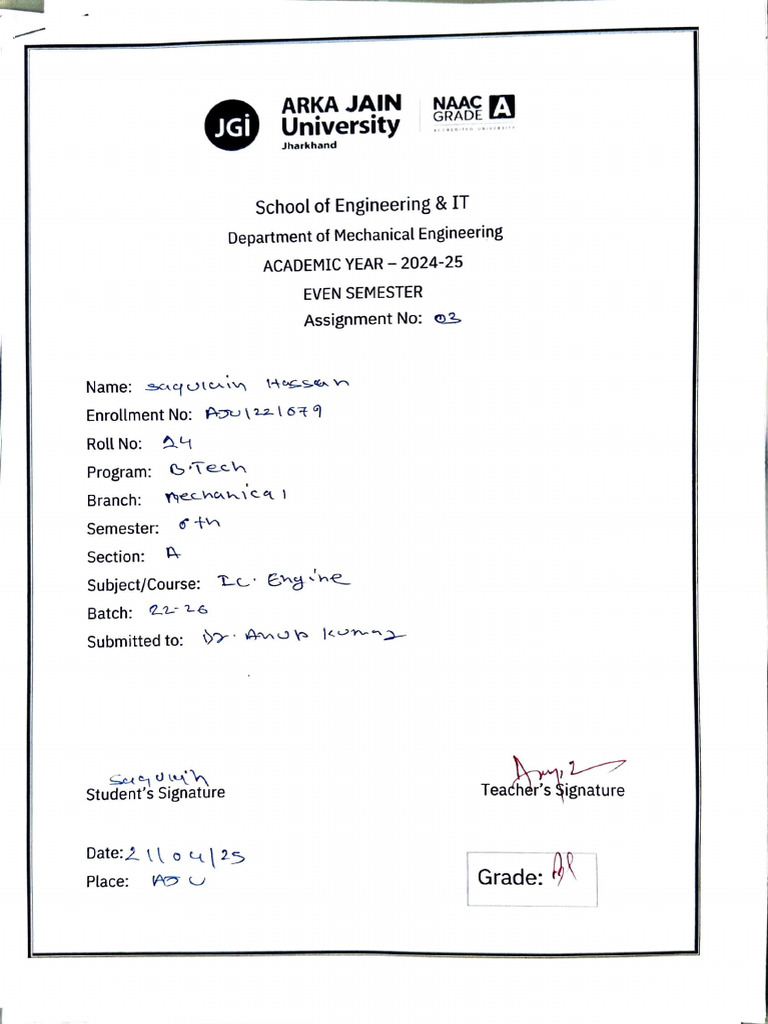 JGi
ARKA JAIN
University
Jharkhand
NAAC
GRADE A
ACCREDITED UNIVERSITY
School of Engineering & IT
Department of Mechanical Engineering
ACADEMIC YEAR – 2024-25
EVEN SEMESTER
Assignment No: 03
Name: Saqulain Hassan
Enrollment No: AJU/22/679
Roll No: 24
Program: B.Tech
Branch: Mechanical
Semester: 6th
Section: A
Subject/Course: I.C. Engine
Batch: 22-26
Submitted to: Dr. Anup Kumar
Saqulain
Student's Signature
Teacher's Signature
Date: 21/04/25
Place: AJU
Grade: